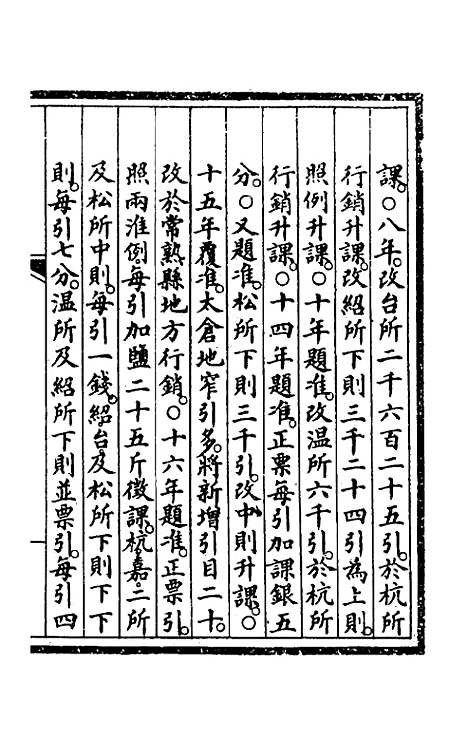 課。○八年。改台所二千六百二十五引。於杭所
行銷升課。改紹所下則三千二十四引為上則。
照例升課。○十年題准。改温所六千引。於杭所
行銷升課。○十四年題准。正票每引加課銀五
分。○又題准。松所下則三千引。改中則升課。○
十五年覆准。太倉地窄引多。將新增引目二十。
改於常熟縣地方行銷。○十六年題准。正票引。
照兩淮例每引加鹽二十五斤徵課。杭嘉二所
及松所中則。每引一錢。紹台及松所下則下下
則。每引七分。温所及紹所下則並票引。每引四